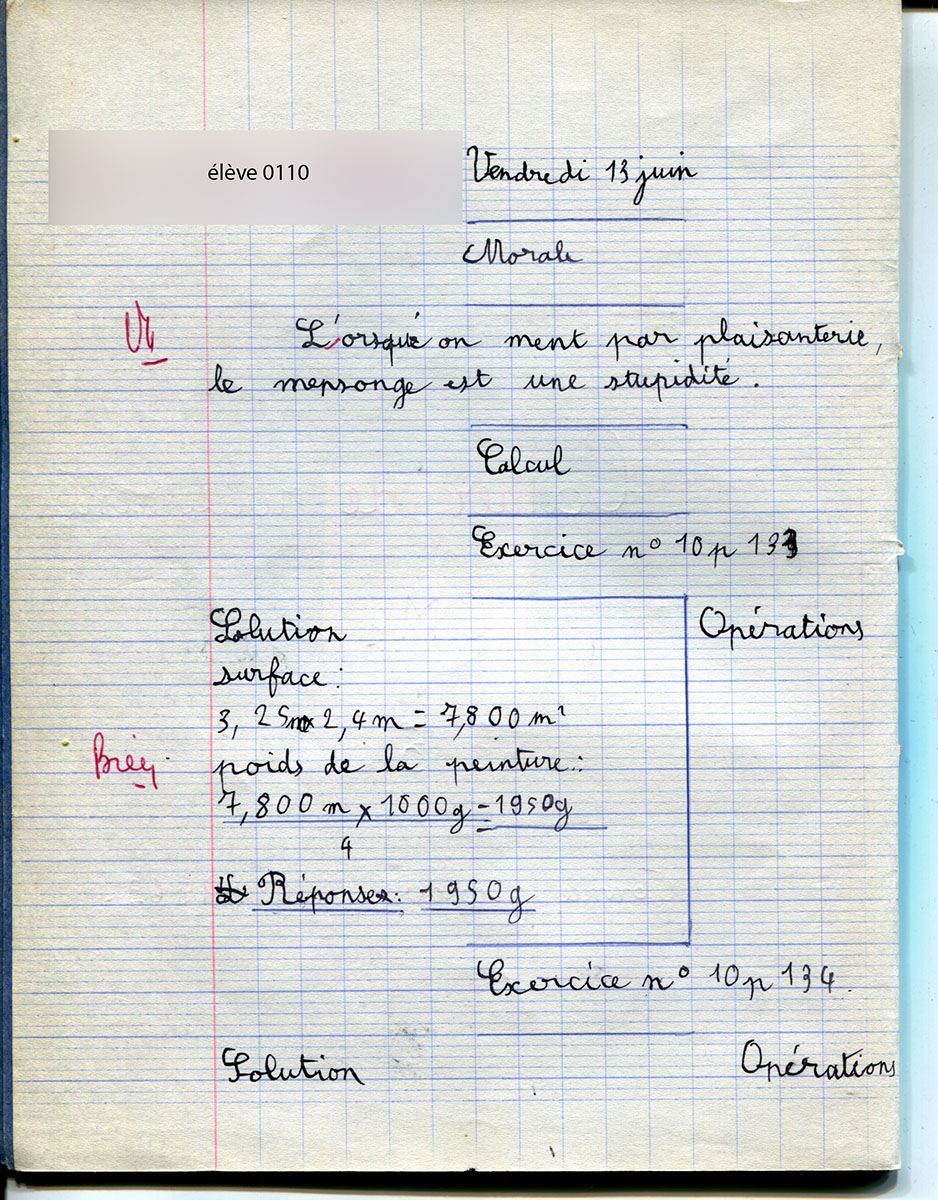 élève 0110
Vendredi 13 juin
Morale
Vr
L'orsque on ment par plaisanterie,
le mensonge est une stupidité.
Calcul
Exercice n° 10 p 133
Solution
Opérations
surface:
3,25m x 2,4m = 7,800 m²
Bien
poids de la peinture:
7,800 m x 1000g = 1950g
4
Réponses: 1950g
Exercice n° 10 p 134.
Solution
Opérations